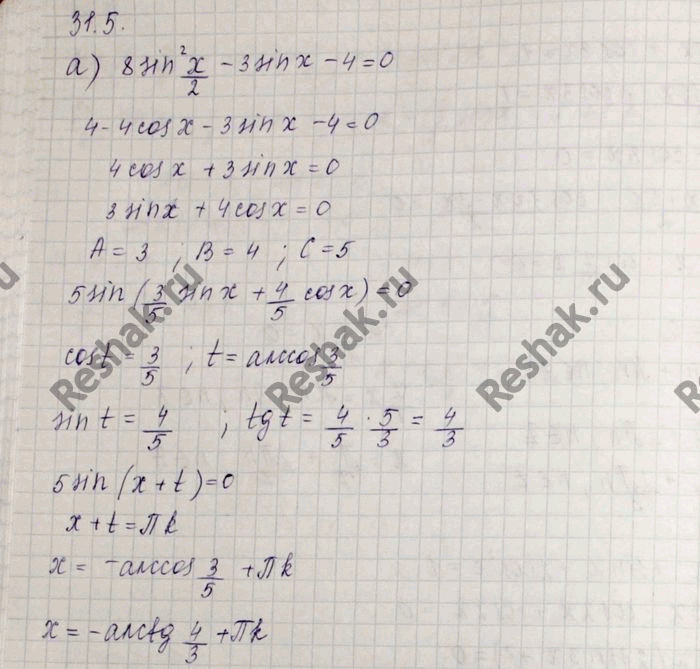 31.5.
а) 8sin² x/2 - 3sinx - 4 = 0
4 - 4cosx - 3sinx - 4 = 0
4cosx + 3sinx = 0
3sinx + 4cosx = 0
A = 3 ; B = 4 ; C = 5
5sin(3/5 sinx + 4/5 cosx) = 0
cost = 3/5 ; t = arccos 3/5
sint = 4/5 ; tgt = 4/5 · 5/3 = 4/3
5sin(x + t) = 0
x + t = Пk
x = -arccos 3/5 + Пk
x = -arctg 4/3 + Пk
Reshak.ru
Reshak.ru
Reshak.ru